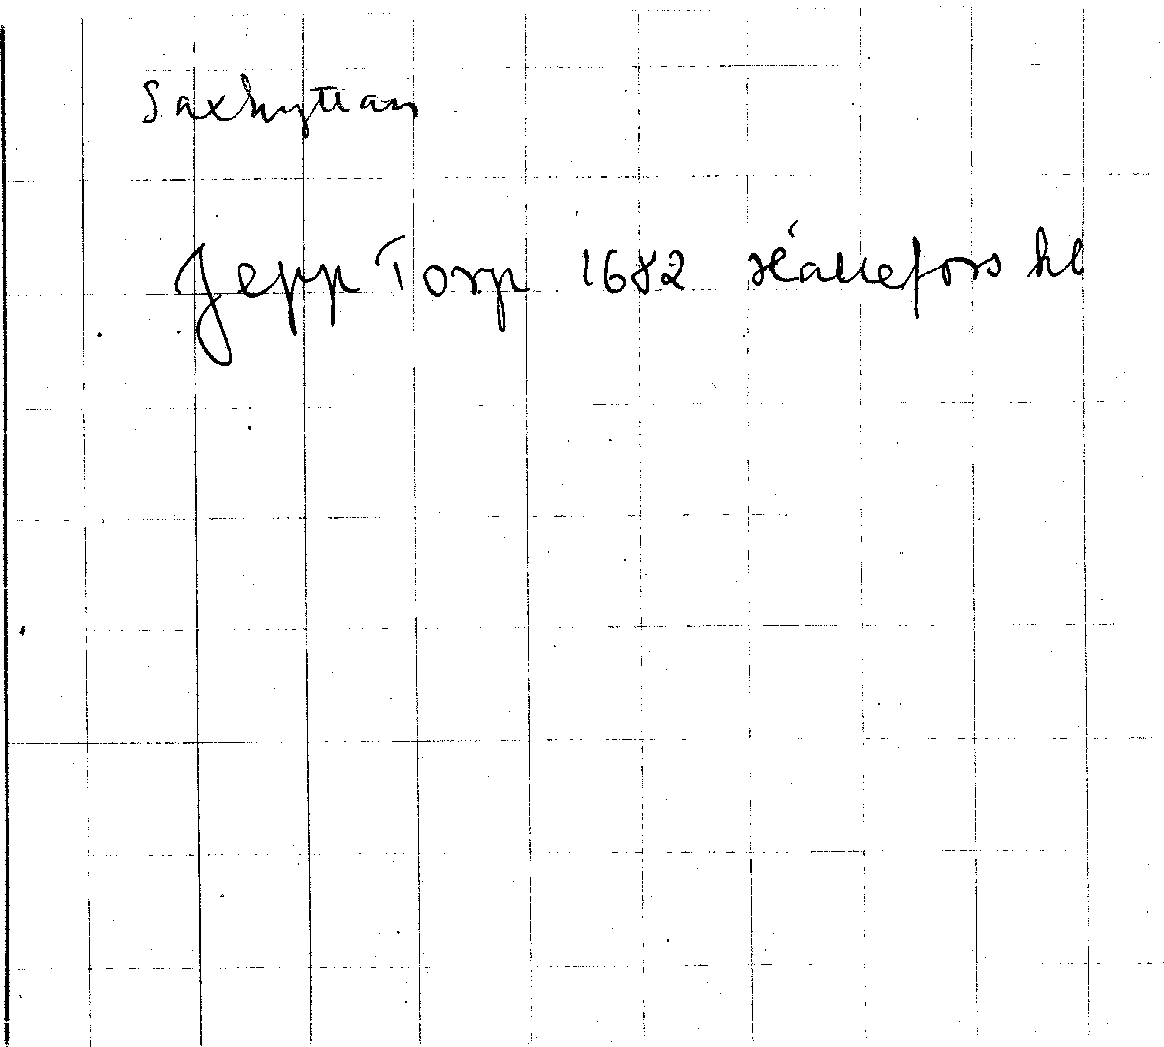 Saxhyttan
Jepp Torp 1682 Hällefors kl